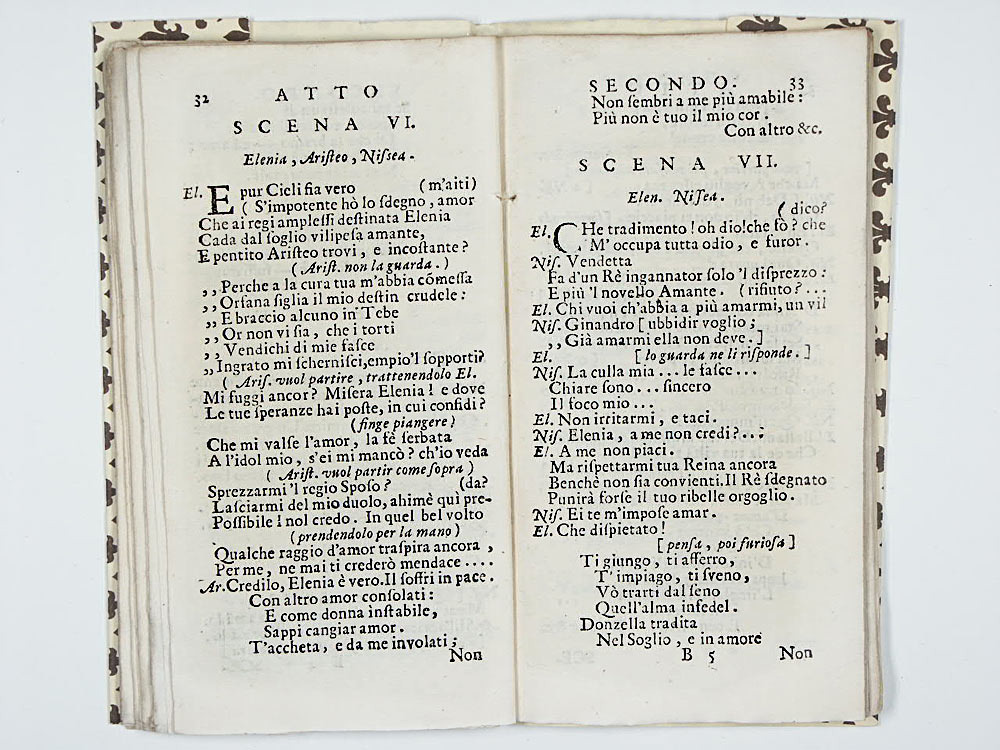 32 ATTO
SCENA VI.
Elenia, Ariſteo, Niſſea.
El. E pur Cieli ſia vero (m'aiti)
( S'impotente hò lo ſdegno, amor
Che ai regi ampleſſi deſtinata Elenia
Cada dal ſoglio vilipeſa amante,
E pentito Ariſteo trovi, e incoſtante?
(Ariſt. non la guarda.)
,,Perche a la cura tua m'abbia cōmeſſa
,,Orfana figlia il mio deſtin crudele:
,,E braccio alcuno in Tebe
,,Or non vi ſia, che i torti
,,Vendichi di mie faſce
,,Ingrato mi ſcherniſci,empio'l ſopporti?
( Ariſ. vuol partire, trattenendolo El.
Mi fuggi ancor? Miſera Elenia! e dove
Le tue ſperanze hai poſte, in cui confidi?
(finge piangere)
Che mi valſe l'amor, la fè ſerbata
A l'idol mio, s'ei mi mancò? ch'io veda
( Ariſt. vuol partir come ſopra)
Sprezzarmi 'l regio Spoſo? (da?
Laſciarmi del mio duolo, ahimè quì pre-
Poſſibile! nol credo. In quel bel volto
(prendendolo per la mano)
Qualche raggio d'amor traſpira ancora,
Per me, ne mai ti crederò mendace....
Ar.Credilo, Elenia è vero.Il ſoffri in pace.
Con altro amor conſolati:
E come donna inſtabile,
Sappi cangiar amor.
T'accheta, e da me involati;
Non
SECONDO. 33
Non ſembri a me più amabile:
Più non è tuo il mio cor.
Con altro &c.
SCENA VII.
Elen. Niſſea.
( dico?
El. CHe tradimento! oh dio!che ſò? che
M'occupa tutta odio, e furor.
Niſ. Vendetta
Fa d'un Rè ingannator ſolo 'l diſprezzo:
E più 'l novello Amante. (rifiuto?...
El. Chi vuoi ch'abbia a più amarmi, un vil
Niſ. Ginandro [ ubbidir voglio;
,,Già amarmi ella non deve.]
El. [ lo guarda ne li riſponde.]
Niſ. La culla mia... le faſce...
Chiare ſono... ſincero
Il foco mio...
El. Non irritarmi, e taci.
Niſ. Elenia, a me non credi?...
El. A me non piaci.
Ma riſpettarmi tua Reina ancora
Benchè non ſia convienti.Il Rè ſdegnato
Punirà forſe il tuo ribelle orgoglio.
Niſ. Ei te m'impoſe amar.
El. Che diſpietato!
[ penſa, poi furioſa]
Ti giungo, ti afferro,
T'impiago, ti ſveno,
Vò trarti dal ſeno
Quell'alma infedel.
Donzella tradita
Nel Soglio, e in amore
B 5 Non